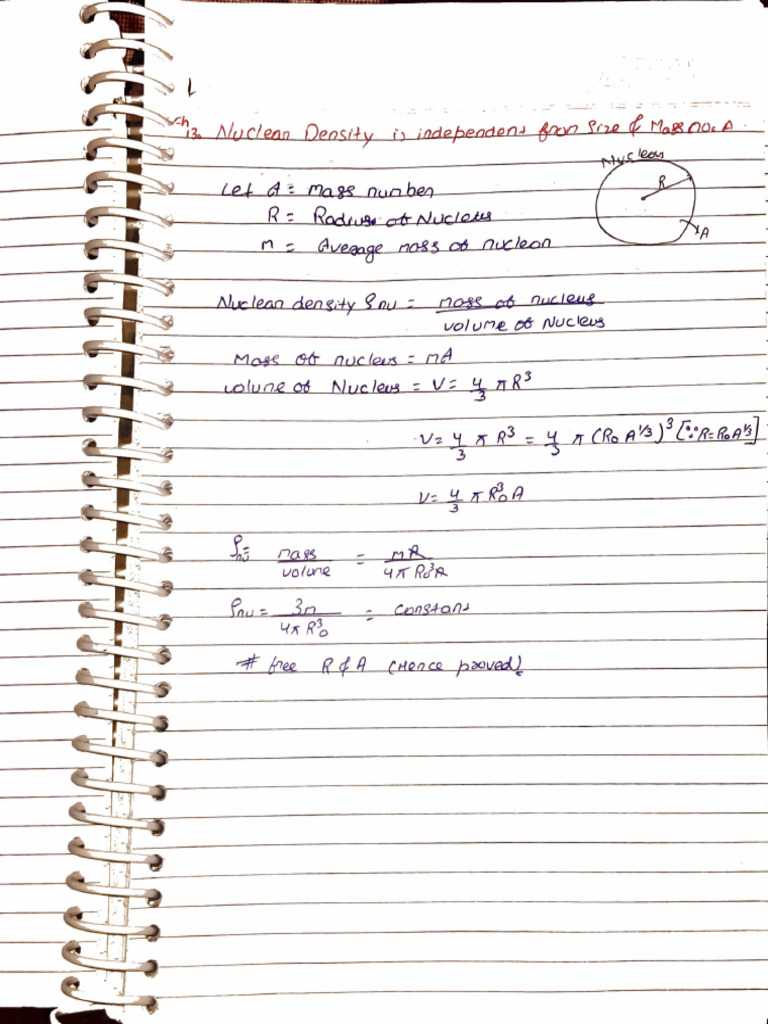 Ch
13. Nuclear Density is independent from Size & Mass no. A.
Nucleus
R
A
Let A = mass number
R = Radius of Nucleus
m = Average mass of nucleon
Nuclear density ρnu = mass of nucleus / volume of Nucleus
Mass of nucleus = mA
volume of Nucleus = V = 4/3 πR³
V = 4/3 π R³ = 4/3 π (R₀ A^1/3)³ [∵ R = R₀A^1/3]
V = 4/3 π R₀³ A
ρnu = mass / volume = mA / 4π R₀³A
ρnu = 3m / 4π R₀³ = constant
# free R & A (Hence proved)